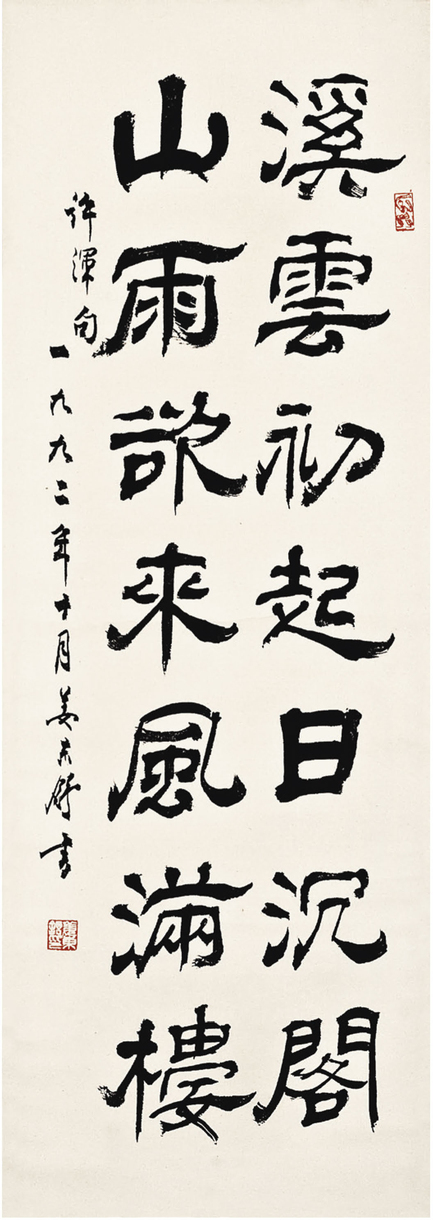 溪雲初起日沉閣
山雨欲來風滿樓
許渾句
一九九二年十月姜东舒书